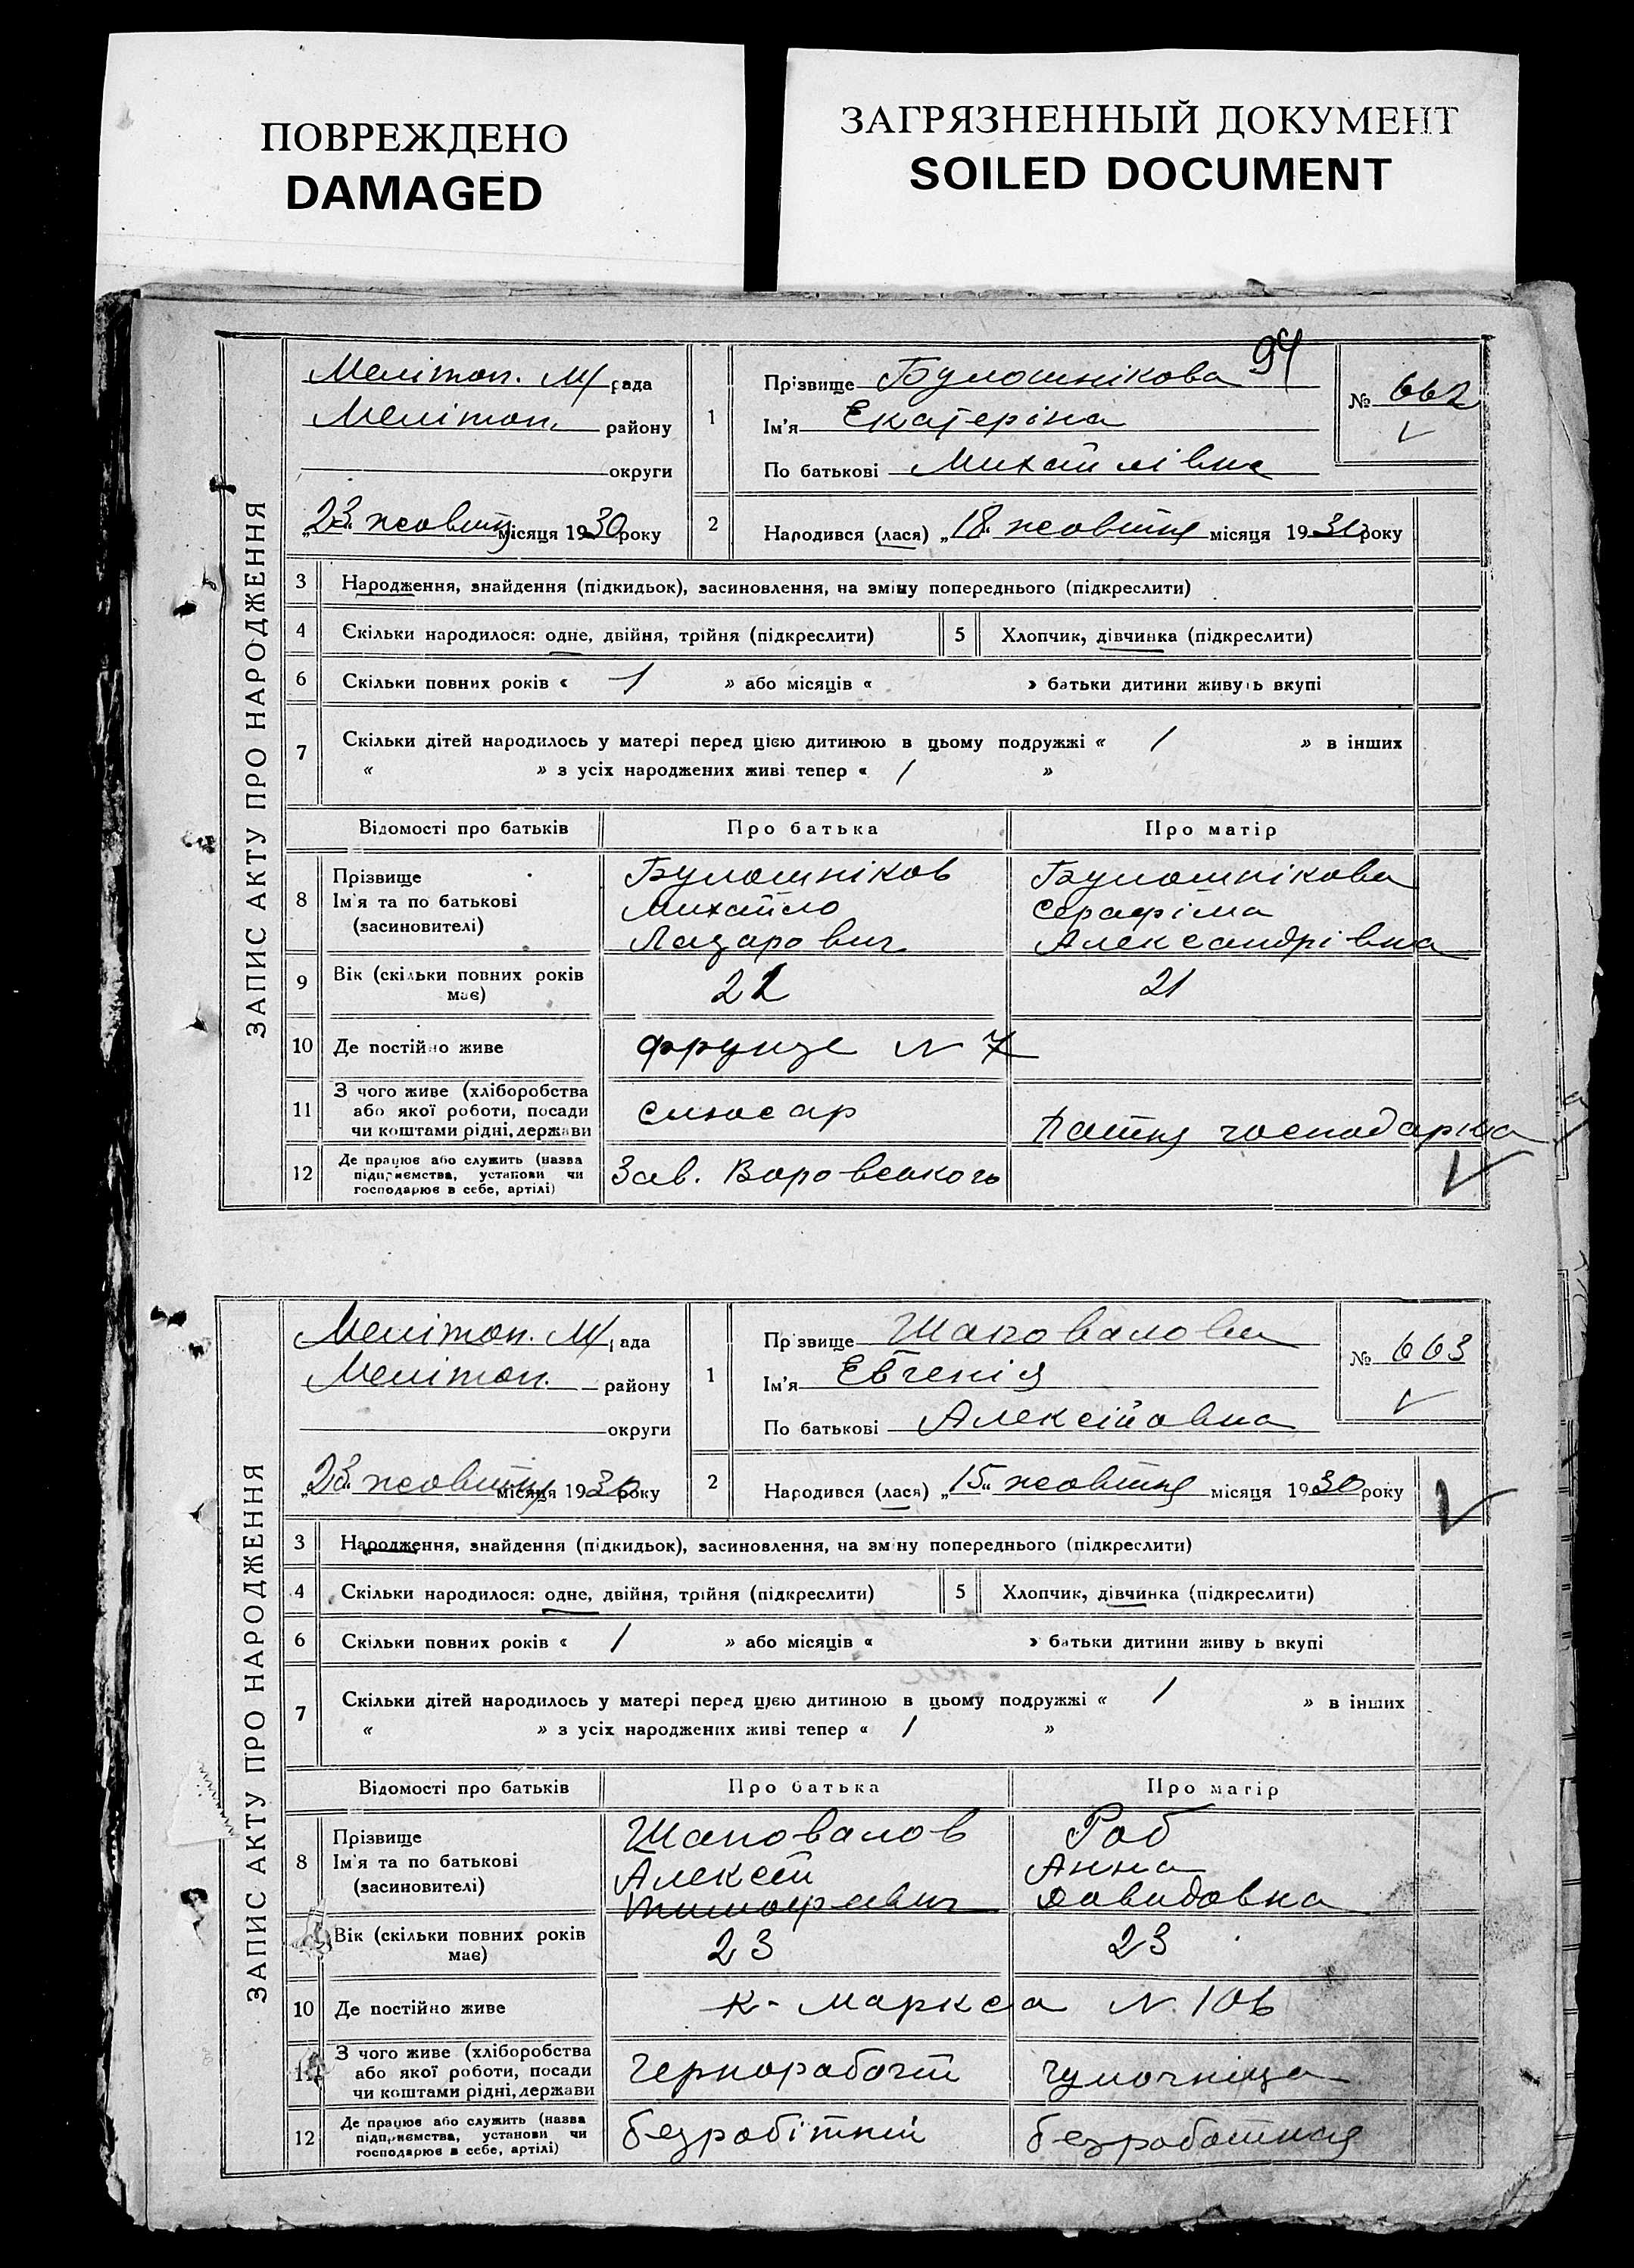 ПОВРЕЖДЕНО
DAMAGED
ЗАГРЯЗНЕННЫЙ ДОКУМЕНТ
SOILED DOCUMENT
94
ЗАПИС АКТУ ПРО НАРОДЖЕННЯ
Меліто​п. М/рада
Мелітоп. району
округи
„23" жовтня місяця 1930 року
1
Прізвище Булошнікова
Ім'я Екатеріна
По батькові Михайлівна
№ 662
2 Народився (лася) „18" жовтня місяця 1930 року
3 Народження, знайдення (підкидьок), засиновлення, на зміну попереднього (підкреслити)
4 Скільки народилося: одне, двійня, трійня (підкреслити) 5 Хлопчик, дівчинка (підкреслити)
6 Скільки повних років « 1 » або місяців « » батьки дитини живуть вкупі
7 Скільки дітей народилось у матері перед цією дитиною в цьому подружжі « 1 » в інших
« » з усіх народжених живі тепер « 1 »
Відомості про батьків Про батька Про матір
8 Прізвище Булошніков Булошнікова
Ім'я та по батькові Михайло Серафіма
(засиновителі) Лазарович Александрівна
9 Вік (скільки повних років має) 22 21
10 Де постійно живе Фрунзе N 7
11 З чого живе (хліборобства
або якої роботи, посади слюсар
чи коштами рідні, держави господарка
12 Де працює або служить (назва
підприємства, установи чи Зав. Воровського
господарює в себе, артілі)
ЗАПИС АКТУ ПРО НАРОДЖЕННЯ
Мелітоп. М/рада
Мелітоп. району
округи
„23" жовтня місяця 1930 року
1
Прізвище Шаповалова
Ім'я Евгенія
По батькові Алексійовна
№ 663
2 Народився (лася) „15" жовтня місяця 1930 року
3 Народження, знайдення (підкидьок), засиновлення, на зміну попереднього (підкреслити)
4 Скільки народилося: одне, двійня, трійня (підкреслити) 5 Хлопчик, дівчинка (підкреслити)
6 Скільки повних років « 1 » або місяців « » батьки дитини живуть вкупі
7 Скільки дітей народилось у матері перед цією дитиною в цьому подружжі « 1 » в інших
« » з усіх народжених живі тепер « 1 »
Відомості про батьків Про батька Про матір
8 Прізвище Шаповалов Роб
Ім'я та по батькові Алексій Анна
(засиновителі) Тимофеевич Давидовна
Вік (скільки повних років має) 23 23
10 Де постійно живе К-Маркса N 106
11 З чого живе (хліборобства
або якої роботи, посади чернорабочій чулочніца
чи коштами рідні, держави
12 Де працює або служить (назва
підприємства, установи чи безробітний безработная
господарює в себе, артілі)